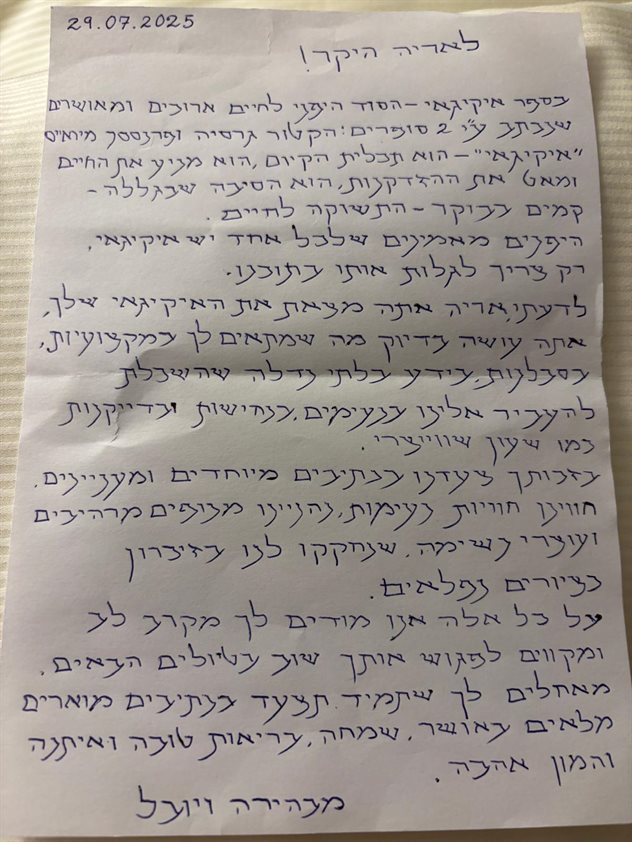 29.07.2025
לאריה היקר!
בספר איקיגאי - הסוד היפני לחיים ארוכים ומאושרים
שנכתב ע"י 2 סופרים: הקטור גרסיה ופרנססק מיראייס
"איקיגאי" - הוא תכלית הקיום, הוא מניע את החיים
ומאט את ההזדקנות, הוא הסיבה שבגללה -
קמים בבוקר - התשוקה לחיים.
היפנים מאמינים שלכל אחד יש איקיגאי,
רק צריך לגלות אותו בתוכנו.
לדעתי, אריה אתה מצאת את האיקיגאי שלך,
אתה עושה בדיוק מה שמתאים לך במקצועיות,
בסבלנות, בידע בלתי נדלה שהשכלת
להעביר אלינו בנעימים, בנחישות ובדייקנות
כמו שעון שווייצרי.
בזכותך צעדנו בנתיבים מיוחדים ומעניינים.
חווינו חוויות נעימות, נהנינו מנופים מרהיבים
ועוצרי נשימה, שנחקקו לנו בזיכרון
כציורים נפלאים.
על כל אלה אנו מודים לך מקרב לב
ומקווים לפגוש אותך שוב בטיולים הבאים.
מאחלים לך שתמיד תצעד בנתיבים מוארים
מלאים באושר, שמחה, בריאות טובה ואיתנה
והמון אהבה.
מבהירה ויובל